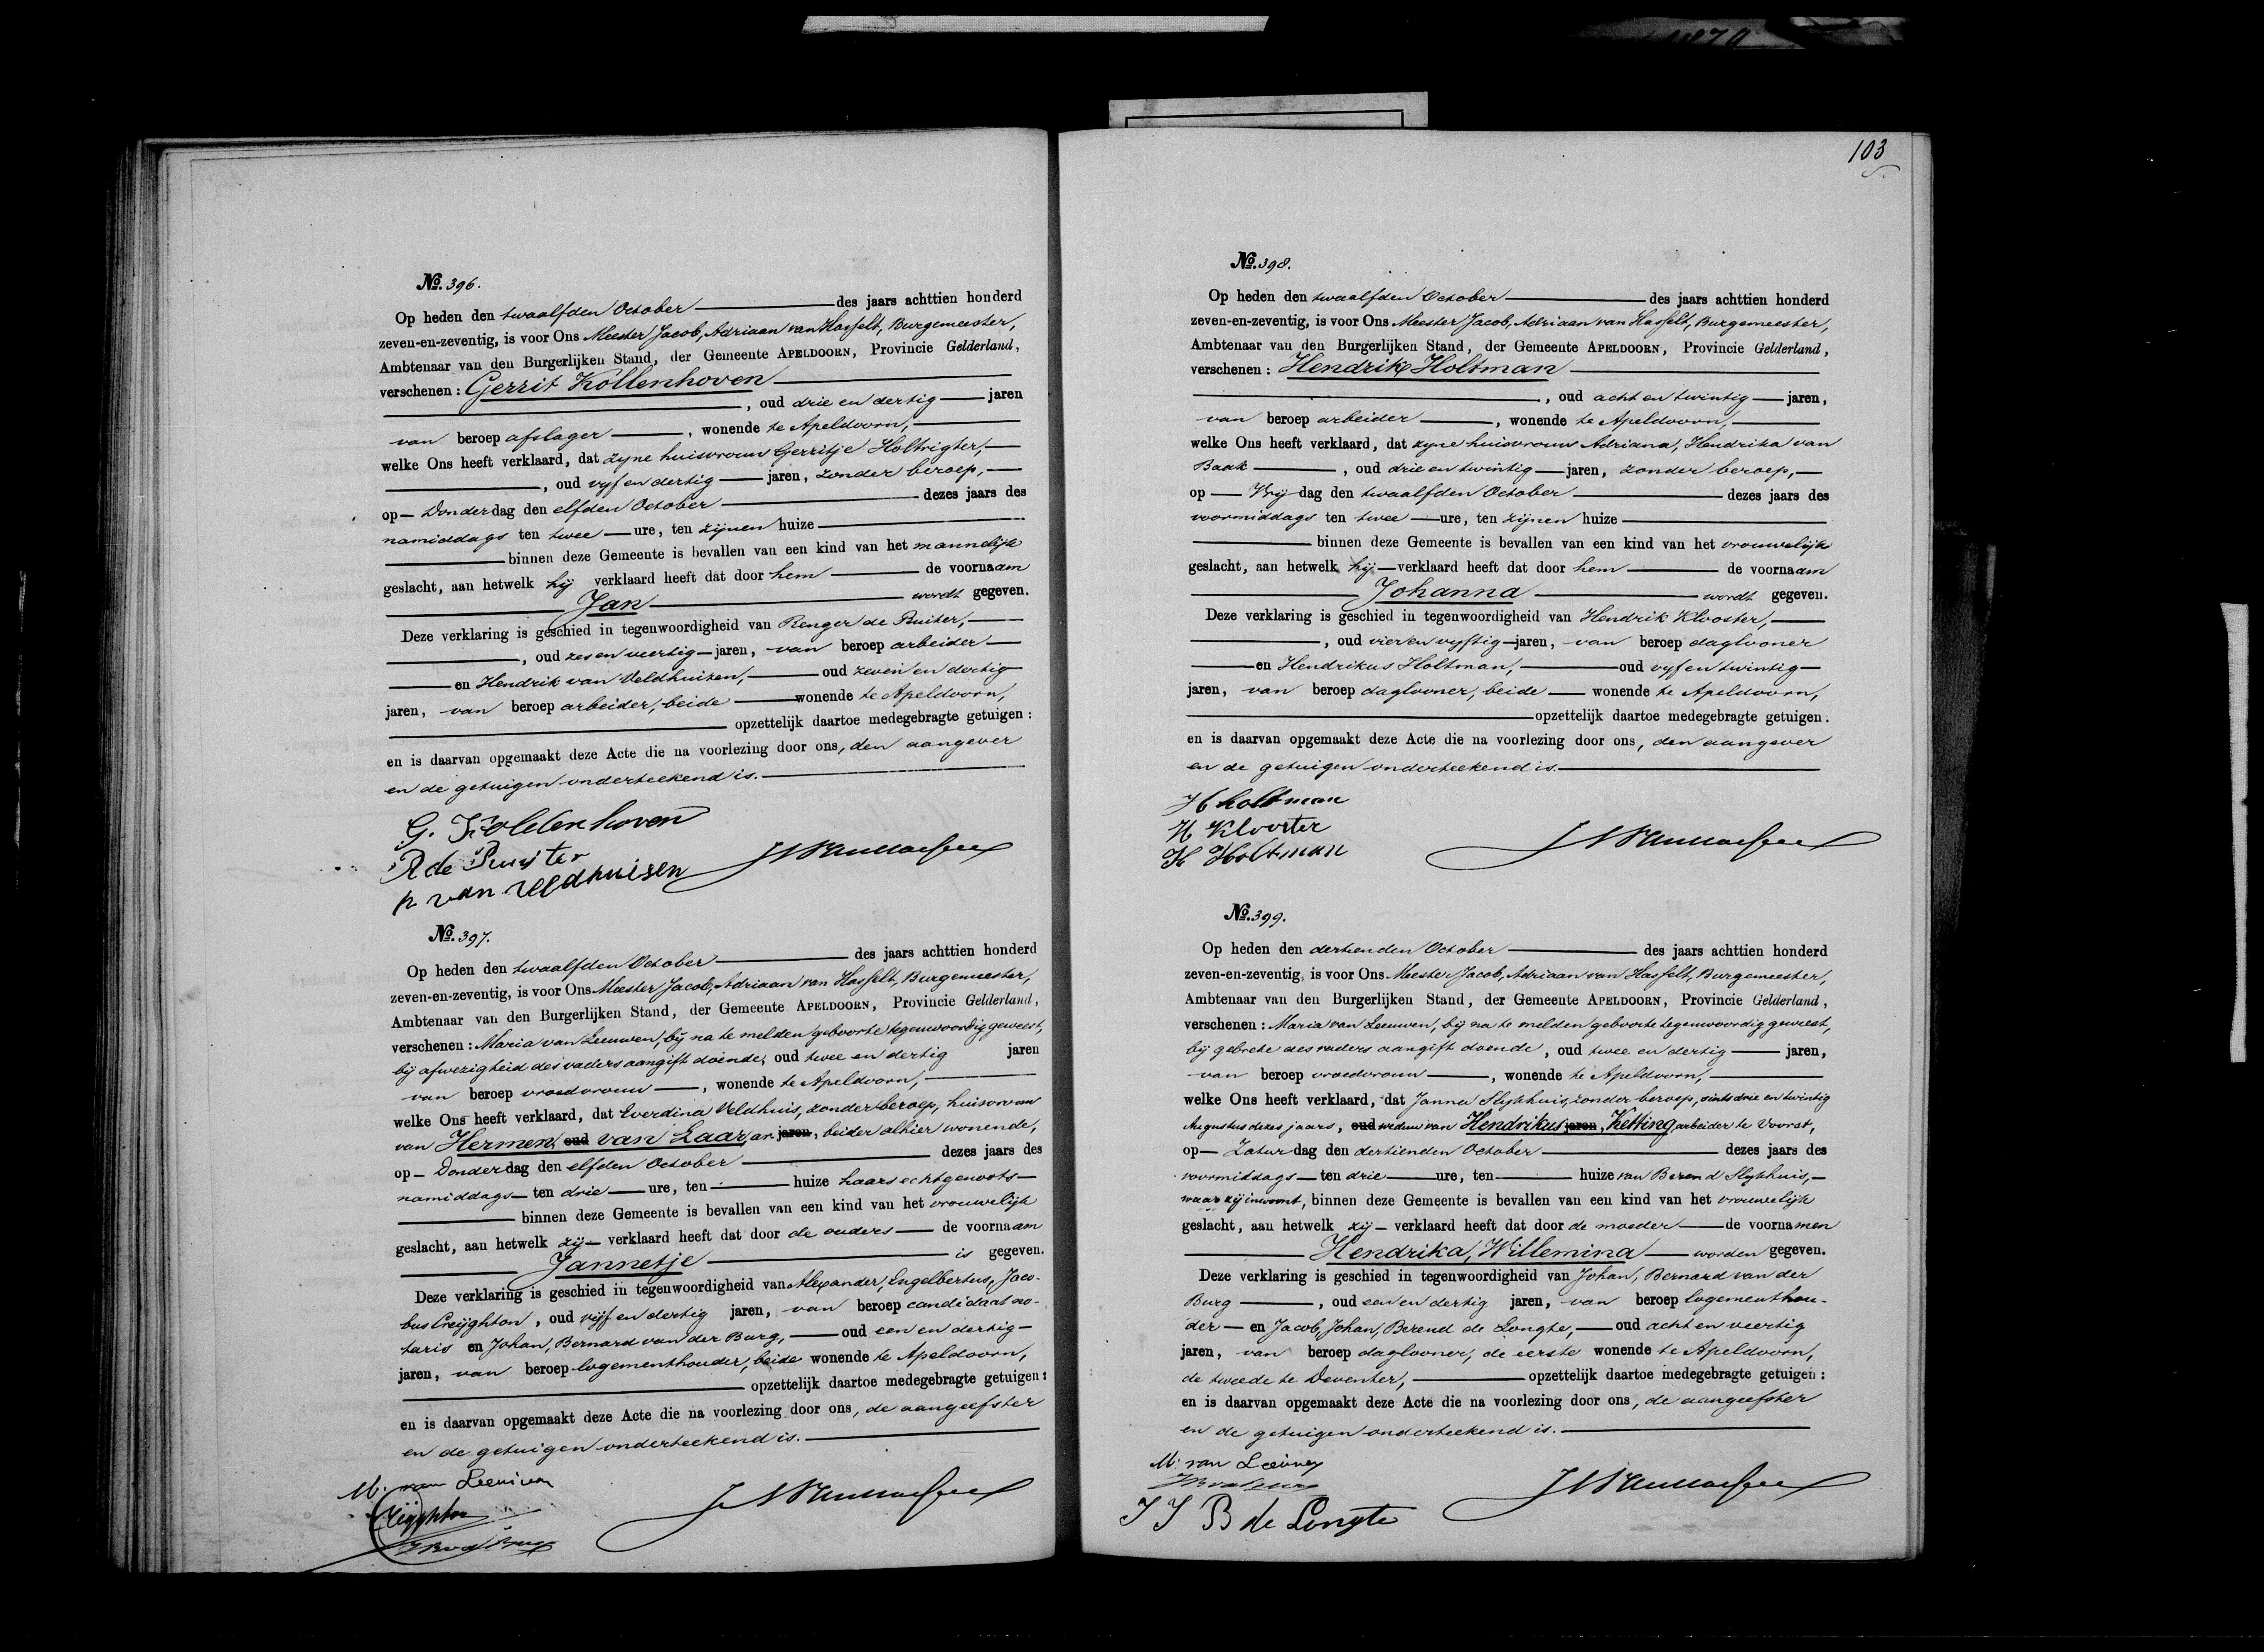 No. 396.
Op heden den twaalfden October des jaars achttien honderd
zeven-en-zeventig, is voor Ons Meester Jacob, Adriaan van Hasselt, Burgemeester,
Ambtenaar van den Burgerlijken Stand, der Gemeente APELDOORN, Provincie Gelderland,
verschenen: Gerrit Kollenhoven
, oud drie en dertig jaren
van beroep afslager, wonende te Apeldoorn,
welke Ons heeft verklaard, dat zyne huisvrouw Gerritje Holtrigter,
, oud vyf en dertig jaren, zonder beroep,
op Donderdag den elfden October dezes jaars des
namiddags ten twee ure, ten zijnen huize
binnen deze Gemeente is bevallen van een kind van het mannelijk
geslacht, aan hetwelk hij verklaard heeft dat door hem de voornaam
Jan wordt gegeven.
Deze verklaring is geschied in tegenwoordigheid van Renger de Ruiter,
, oud zes en veertig jaren, van beroep arbeider
en Hendrik van Veldhuizen, oud zeven en dertig
jaren, van beroep arbeider, beide wonende te Apeldoorn,
opzettelijk daartoe medegebragte getuigen:
en is daarvan opgemaakt deze Acte die na voorlezing door ons, den aangever
en de getuigen onderteekend is.
G. Kollenhoven
R de Ruijter
h van Veldhuisen
No. 397.
Op heden den twaalfden October des jaars achttien honderd
zeven-en-zeventig, is voor Ons Meester Jacob, Adriaan van Hasselt, Burgemeester,
Ambtenaar van den Burgerlijken Stand, der Gemeente APELDOORN, Provincie Gelderland,
verschenen: Maria van Leeuwen, bij na te melden geboorte tegenwoordig geweest,
bij afwezigheid des vaders aangift doende, oud twee en dertig jaren
van beroep vroedvrouw, wonende te Apeldoorn,
welke Ons heeft verklaard, dat Everdina Veldhuis, zonder beroep, huisvrouw
van Hermen oud van Laar, jaren, beider alhier wonende,
op Donderdag den elfden October dezes jaars des
namiddags ten drie ure, ten huize haars echtgenoots
binnen deze Gemeente is bevallen van een kind van het vrouwelijk
geslacht, aan hetwelk zij verklaard heeft dat door de ouders de voornaam
Jannetje is gegeven.
Deze verklaring is geschied in tegenwoordigheid van Alexander, Engelbertus, Jaco-
bus Creijghton, oud vijf en dertig jaren, van beroep candidaat no-
taris en Johan, Bernard van der Burg, oud een en dertig
jaren, van beroep logementhouder, beide wonende te Apeldoorn,
opzettelijk daartoe medegebragte getuigen:
en is daarvan opgemaakt deze Acte die na voorlezing door ons, de aangeefster
en de getuigen onderteekend is.
M. van Leeuwen
Creijghton
103
No. 398.
Op heden den twaalfden October des jaars achttien honderd
zeven-en-zeventig, is voor Ons Meester Jacob, Adriaan van Hasselt, Burgemeester,
Ambtenaar van den Burgerlijken Stand, der Gemeente APELDOORN, Provincie Gelderland,
verschenen: Hendrik Holtman
, oud acht en twintig jaren,
van beroep arbeider, wonende te Apeldoorn,
welke Ons heeft verklaard, dat zyne huisvrouw Adriana, Hendrika van
Baak, oud drie en twintig jaren, zonder beroep,
op Vrijdag den twaalfden October dezes jaars des
voormiddags ten twee ure, ten zijnen huize
binnen deze Gemeente is bevallen van een kind van het vrouwelijk
geslacht, aan hetwelk hij verklaard heeft dat door hem de voornaam
Johanna wordt gegeven.
Deze verklaring is geschied in tegenwoordigheid van Hendrik Klooster,
, oud vier en vyftig jaren, van beroep daglooner
en Hendrikus Holtman, oud vyf en twintig
jaren, van beroep daglooner, beide wonende te Apeldoorn,
opzettelijk daartoe medegebragte getuigen.
en is daarvan opgemaakt deze Acte die na voorlezing door ons, den aangever
en de getuigen onderteekend is.
H holtman
H Klooster
H Holtman
No. 399.
Op heden den dertienden October des jaars achttien honderd
zeven-en-zeventig, is voor Ons Meester Jacob, Adriaan van Hasselt, Burgemeester,
Ambtenaar van den Burgerlijken Stand, der Gemeente APELDOORN, Provincie Gelderland,
verschenen: Maria van Leeuwen, bij na te melden geboorte tegenwoordig geweest,
bij gebreke des vaders aangift doende, oud twee en dertig jaren,
van beroep vroedvrouw, wonende te Apeldoorn,
welke Ons heeft verklaard, dat Janna Slykhuis, zonder beroep, sints drie en twintig
Augustus dezes jaars, oud weduw van Hendrikus jaren, Ketting, arbeider te Voorst,
op Zaturdag den dertienden October dezes jaars des
voormiddags ten drie ure, ten huize van Berend Slykhuis,
waar zij inwoont, binnen deze Gemeente is bevallen van een kind van het vrouwelijk
geslacht, aan hetwelk zij verklaard heeft dat door de moeder de voornamen
Hendrika, Willemina worden gegeven.
Deze verklaring is geschied in tegenwoordigheid van Johan, Bernard van der
Burg, oud een en dertig jaren, van beroep logementhou-
der en Jacob, Johan, Berend de Longte, oud acht en veertig
jaren, van beroep daglooner, de eerste wonende te Apeldoorn,
de tweede te Deventer, opzettelijk daartoe medegebragte getuigen:
en is daarvan opgemaakt deze Acte die na voorlezing door ons, de aangeefster
en de getuigen onderteekend is.
M. van Leeuwen
J J B de Longte